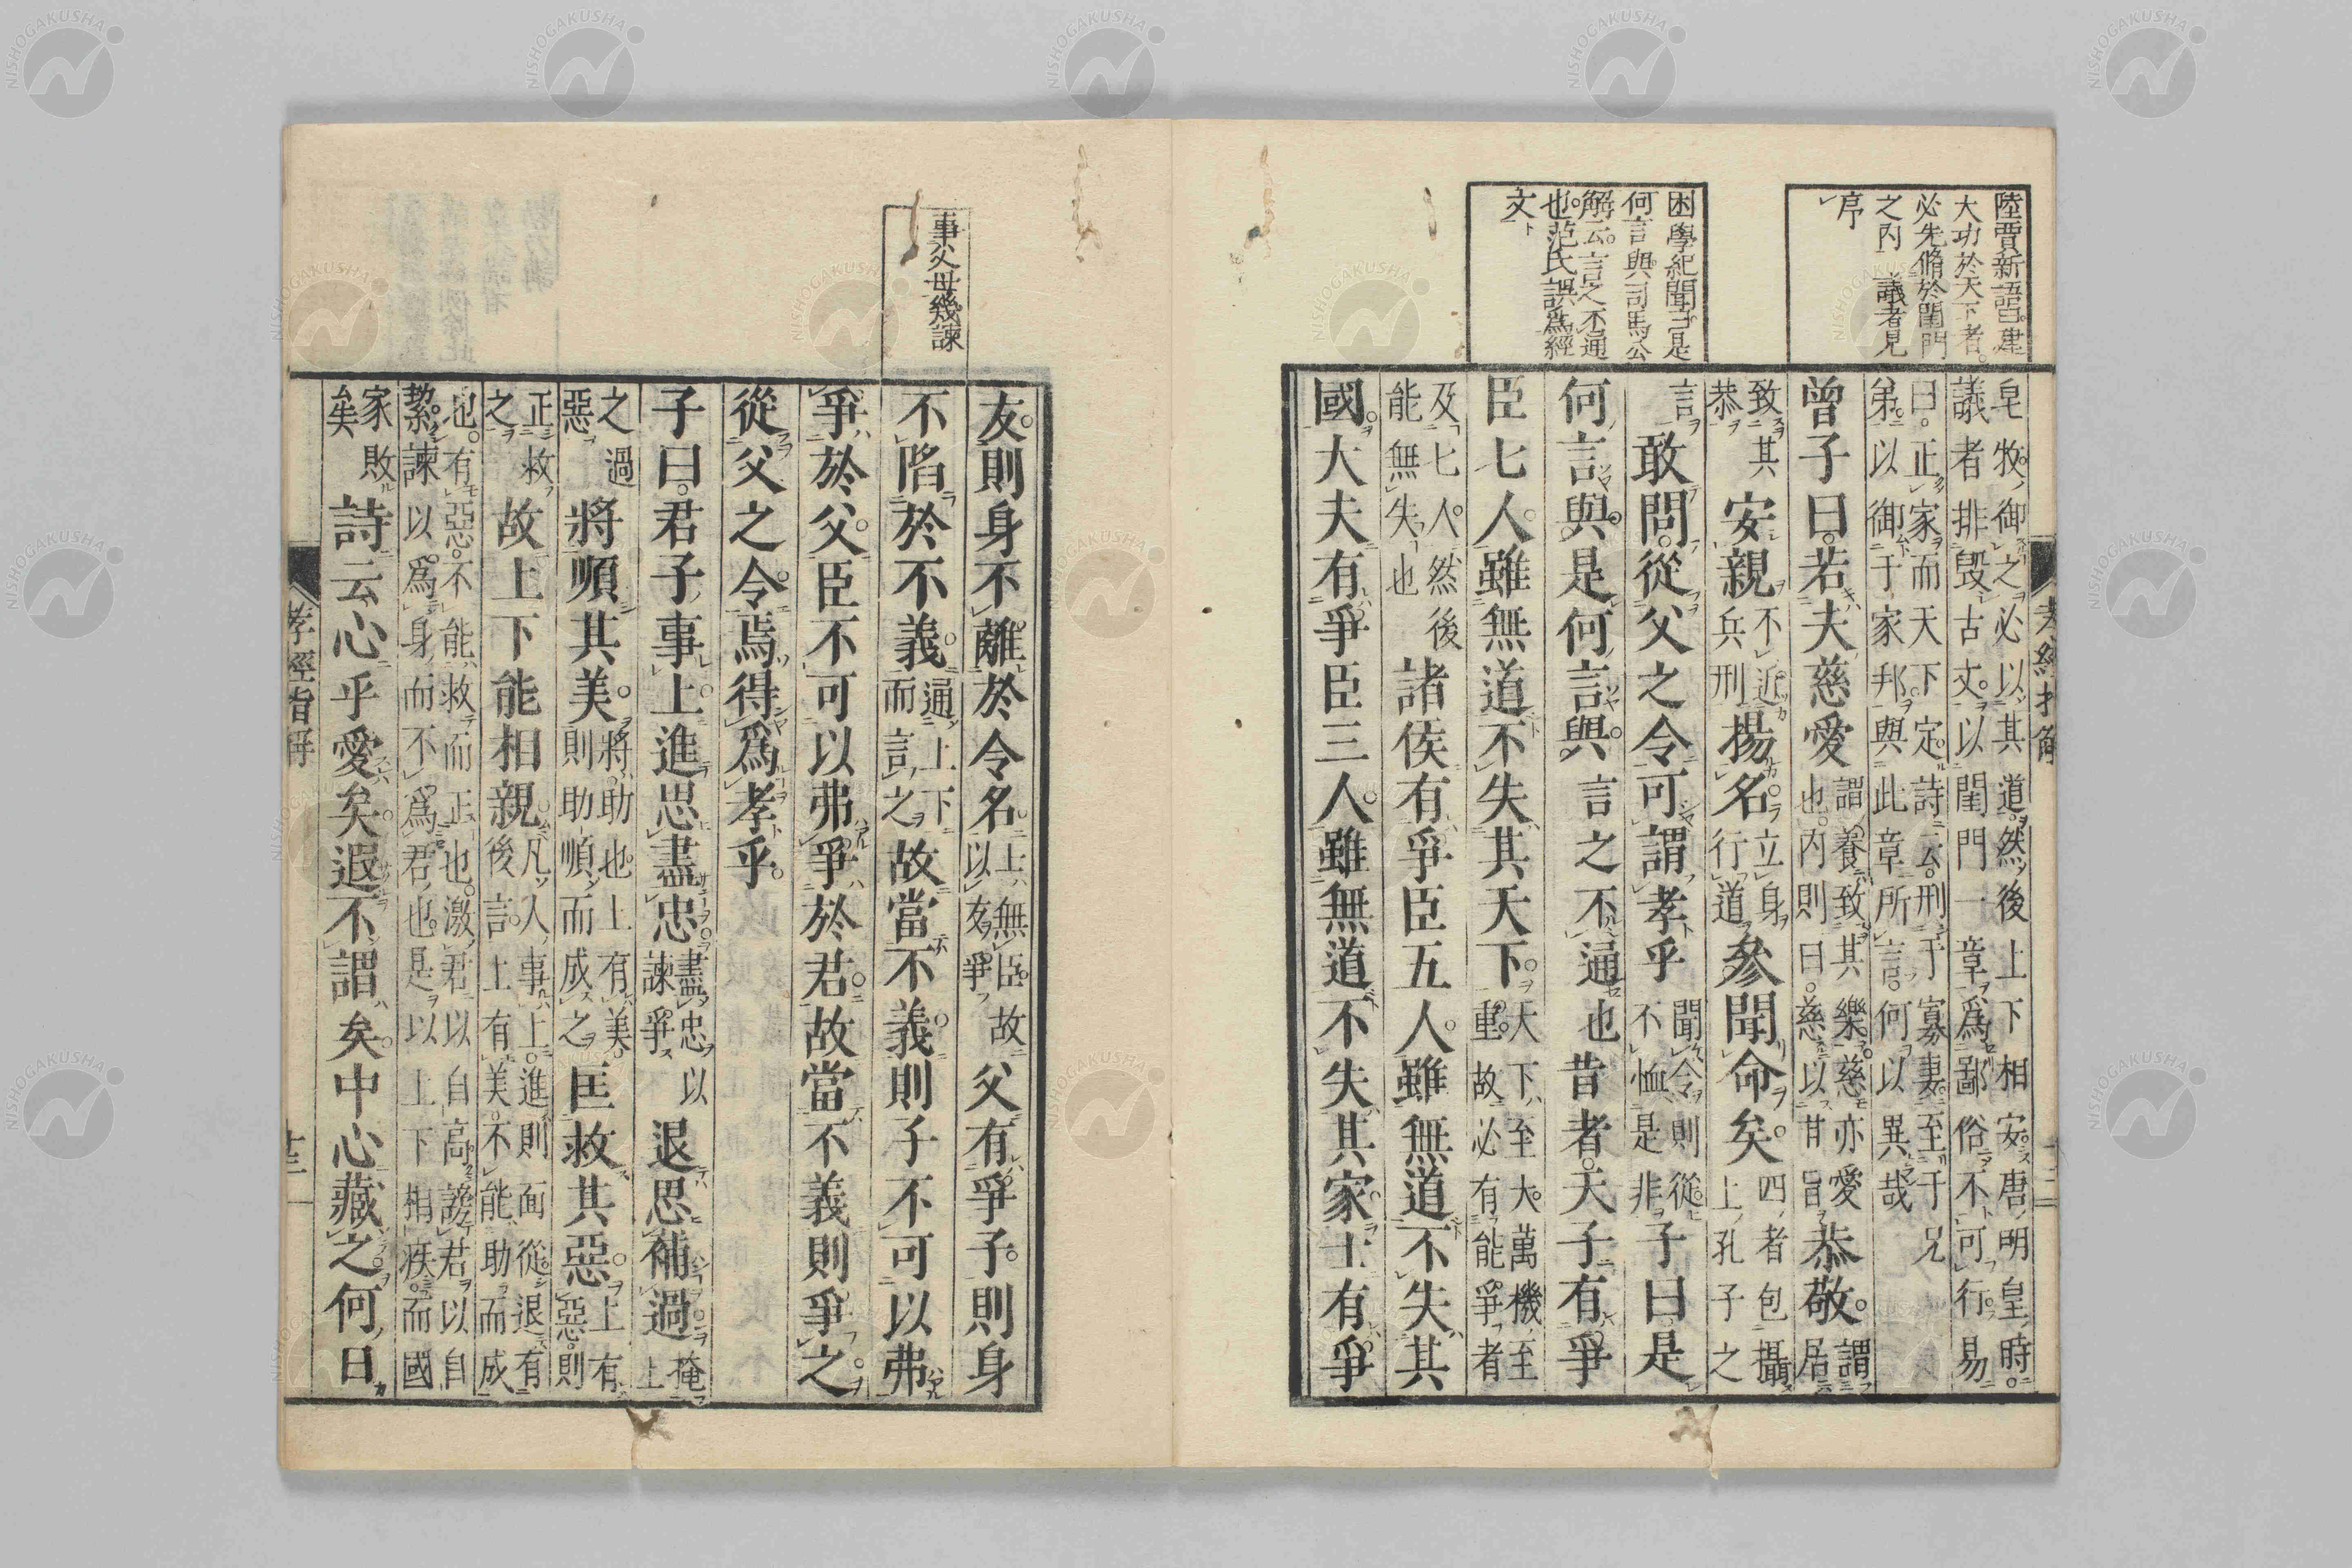 陸賈新語曰建
大功於天下者
必先脩於閨門
之内 議者見
序
困學紀聞云是
何言與司馬公
解云言之不通
也范氏誤爲經
文
孝經指解
皂牧御之必以其道然後上下相安唐明皇時
議者排毀古文以閨門一章爲鄙俗不可行易
曰正家而天下定詩云刑于寡妻至于兄
弟以御于家邦與此章所言何以異哉
曾子曰若夫慈愛謂養致其樂慈亦愛也内則曰慈以甘旨恭敬謂居
致其恭安親不近兵刑揚名立身行道參聞命矣四者包攝上孔子之
言敢問從父之令可謂孝乎聞令則從不恤是非子曰是
何言與是何言與 言之不通也昔者天子有爭
臣七人雖無道不失其天下天下至大萬機至重故必有能爭者
及七人然後能無失也諸侯有爭臣五人雖無道不失其
國大夫有爭臣三人雖無道不失其家士有爭
事父母幾諫
友則身不離於令名上無臣故以友爭父有爭子則身
不陷於不義通上下而言之故當不義則子不可以弗
爭於父臣不可以弗爭於君故當不義則爭之
從父之令焉得爲孝乎
子曰君子事上進思盡忠盡忠以諫爭退思補過掩上
之過惡將順其美將助也上有美則助順而成之匡救其惡上有惡則
正救之故上下能相親凡人事上進則面從退有後言上有美不能助而成
也有惡不能救而正也激君以自高謗君以自
絜諫以爲身而不爲君也是以上下相疾而國
家敗矣詩云心乎愛矣遐不謂矣中心藏之何日
孝經指解
十三
NISHOGAKUSHA